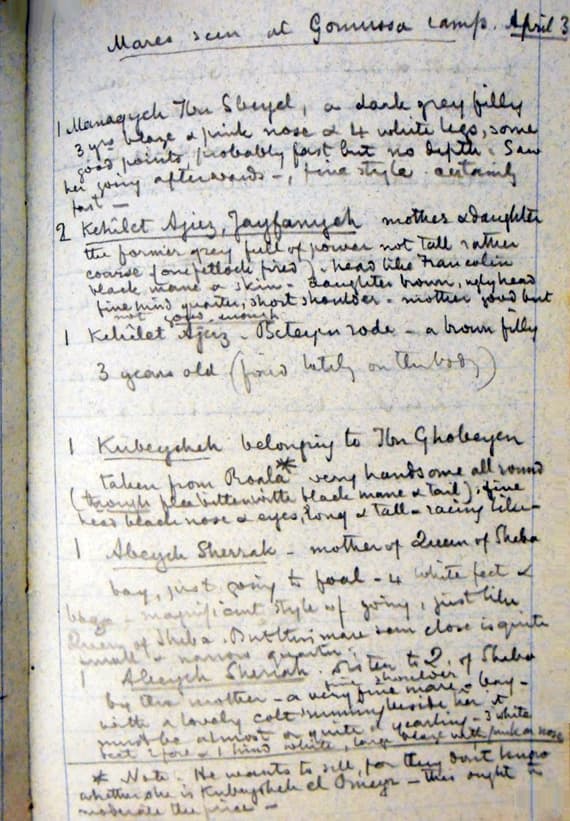 Mares seen at Gomussa camp. April 3
1 Managyeh Ibn Sbeyel, a dark grey filly
3 yrs blaze & pink nose & 4 white legs, some
good points, probably fast but no depth. Saw
her going afterwards -, fine style certainly
fast -
2 Kehilet Ajuz, Jayfanyeh mother & daughter
the former grey full of power not tall rather
coarse (one fetlock fired). head like Francolin
black mane & skin - daughter brown, ugly head
fine hind quarter, short shoulder - mother good but
not good enough
1 Kehilet Ajuz - Beteyen rode - a brown filly
3 years old (fired lately on the body)
1 Kubeysheh belonging to Ibn Ghobeyen
taken from Roala * very handsome all round
(though flea bitten with black mane & tail). fine
head black nose & eyes, long & tall - racing like -
1 Abeyeh Sherrak - mother of Queen of Sheba
bay, just going to foal - 4 white feet &
- magnificent style of going, just like
Queen of Sheba. But this mare seen close is quite
small & narrow quarter.
1 Abeyeh Sherrak. Sister to Q. of Sheba
by the mother - a very fine mare - bay -
fine shoulder
with a lovely colt running beside her, it
must be almost or quite a yearling - 3 white
feet 2 fore & 1 hind white, large blaze with pink on nose
* Note. He wants to sell, for they don't know
whether she is Kubeysheh el Omeyr - this ought to
moderate the price -